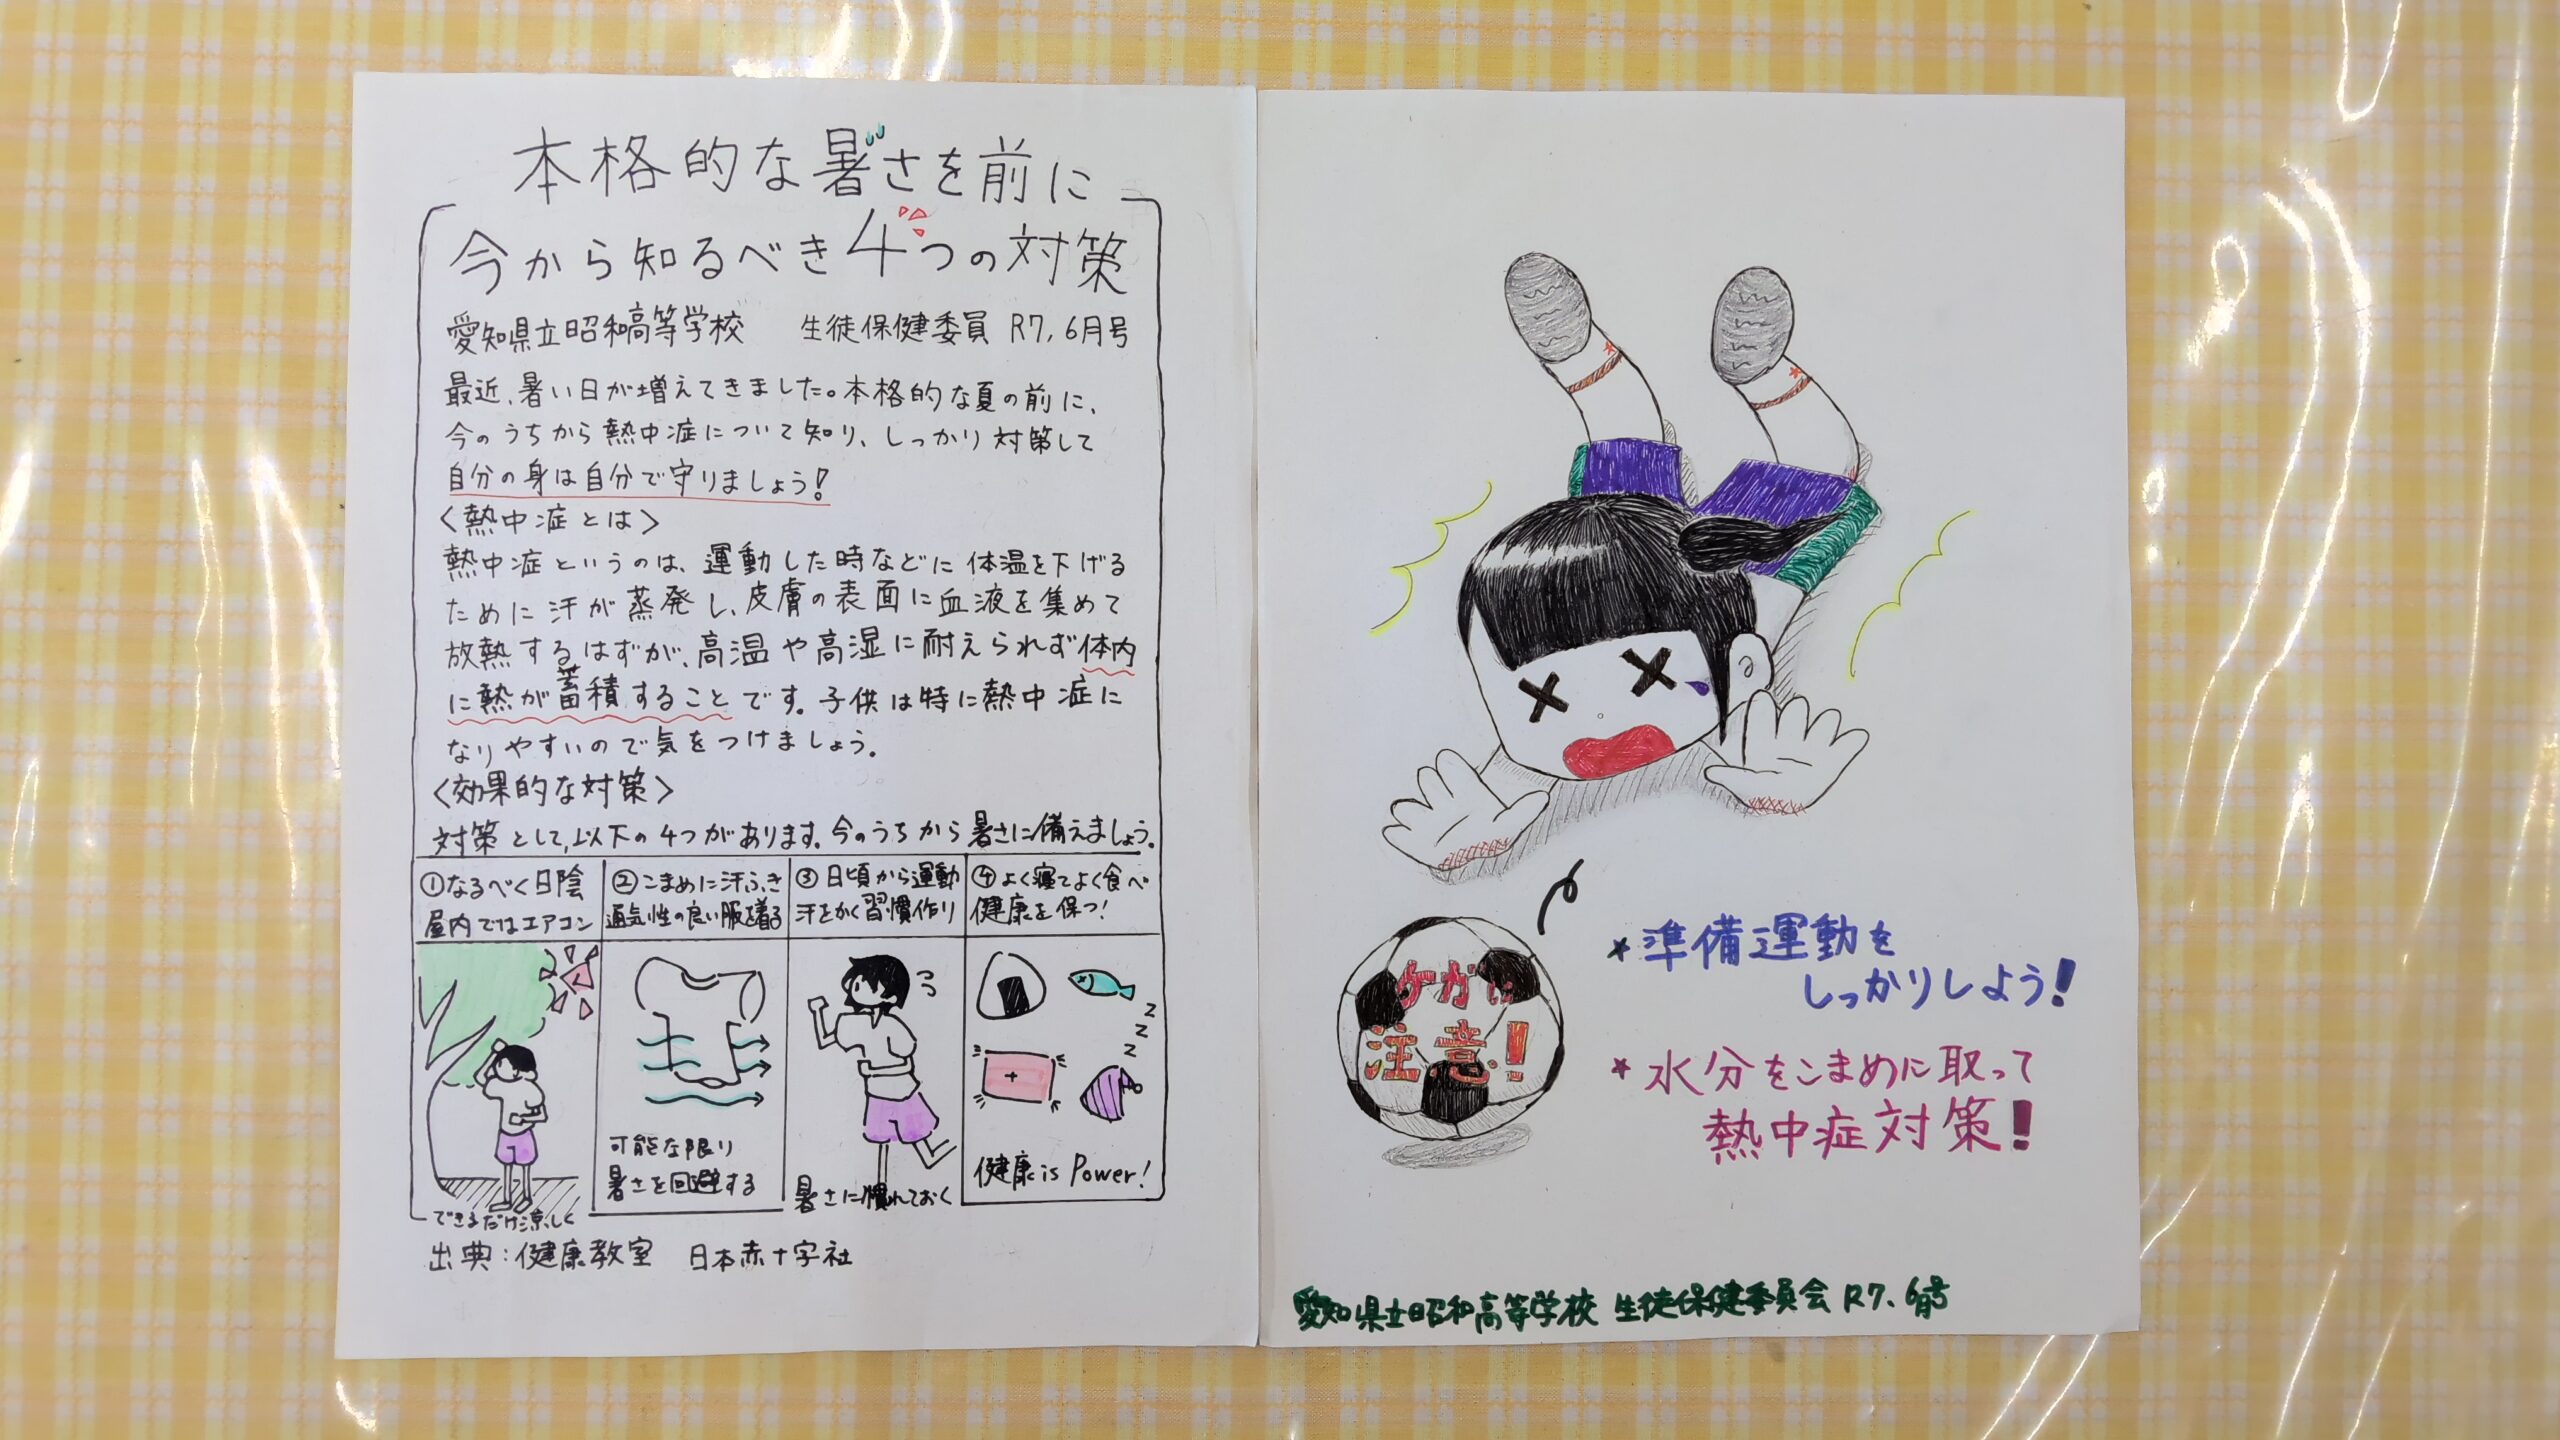 本格的な暑さを前に
今から知るべき4つの対策
愛知県立昭和高等学校 生徒保健委員 R7,6月号
最近、暑い日が増えてきました。本格的な夏の前に、
今のうちから熱中症について知り、しっかり対策して
自分の身は自分で守りましょう!
<熱中症とは>
熱中症というのは、運動した時などに体温を下げる
ために汗が蒸発し、皮膚の表面に血液を集めて
放熱するはずが、高温や高湿に耐えられず体内
に熱が蓄積することです。子供は特に熱中症に
なりやすいので気をつけましょう。
<効果的な対策>
対策として,以下の4つがあります。今のうちから暑さに備えましょう。
①なるべく日陰
屋内ではエアコン
できるだけ涼しく
②こまめに汗ふき
通気性の良い服を着る
可能な限り
暑さを回避する
③日頃から運動
汗をかく習慣作り
暑さに慣れておく
④よく寝てよく食べ
健康を保つ!
z
z
z
健康is Power!
出典:健康教室 日本赤十字社
ケガに
注意!
*準備運動を
しっかりしよう!
*水分をこまめに取って
熱中症対策!
愛知県立昭和高等学校 生徒保健委員会 R7、6月号